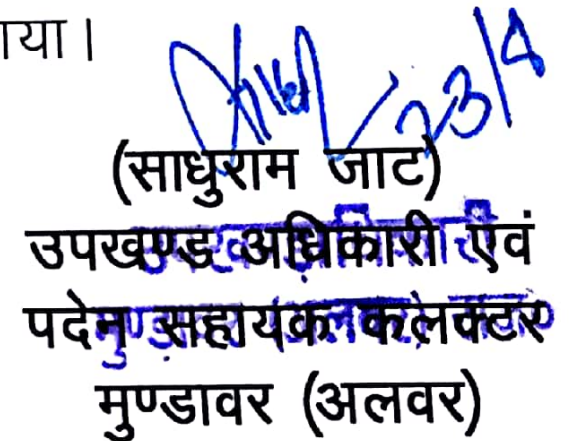 ाया।
23/4
(साधुराम जाट)
उपखण्ड अधिकारी एवं
पदेन सहायक कलक्टर
मुण्डावर (अलवर)